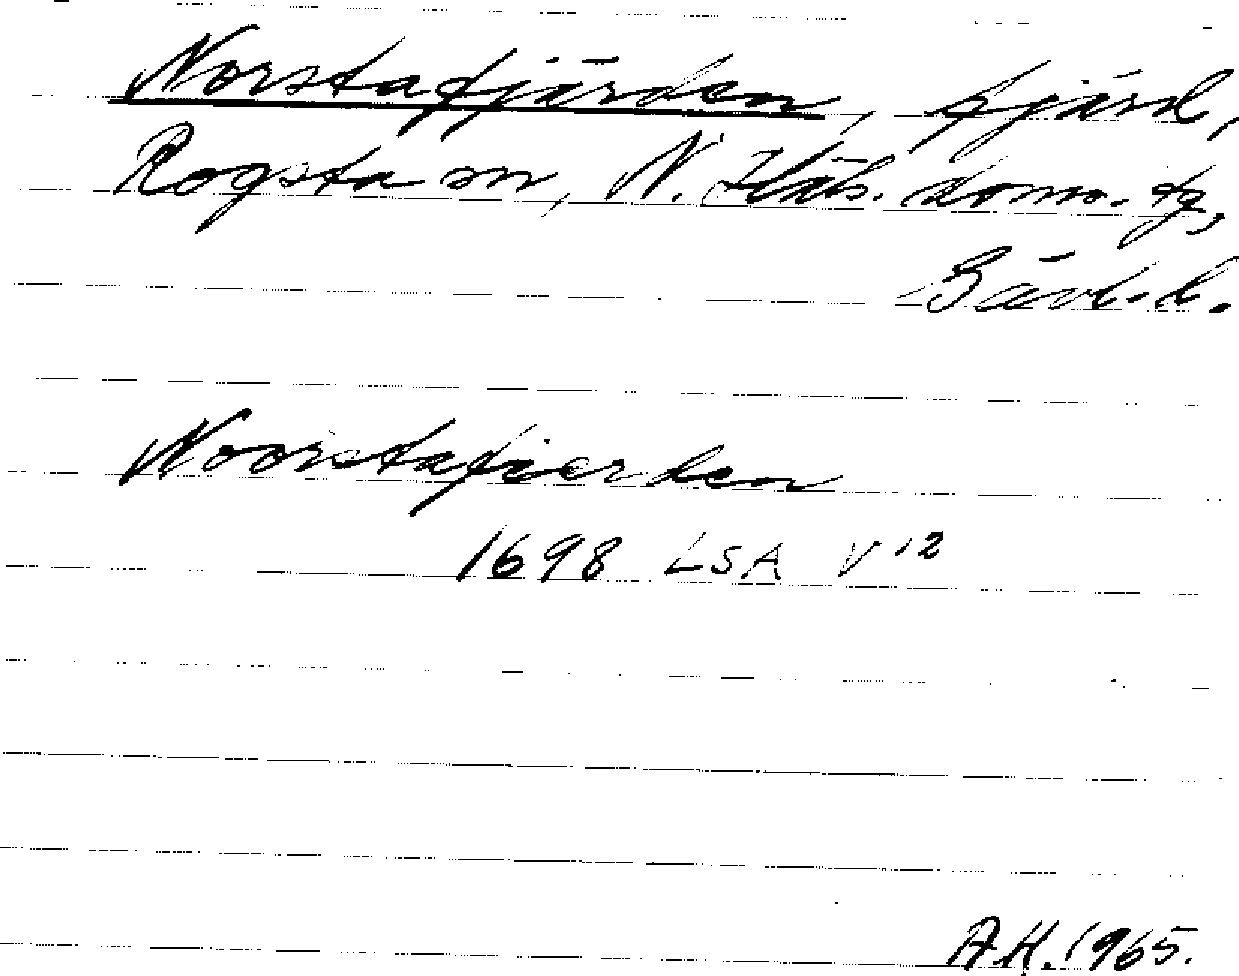 Norstafjärden, fjärd,
Rogsta sn, N. Häls. doms. tg,
Gävl. l.
Noorstafierden
1698 LSA V 12
A.H. 1965.